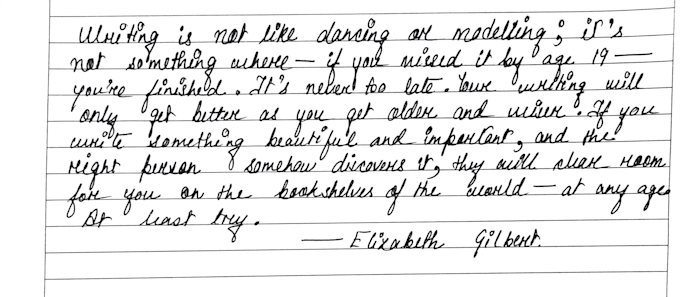 Writing is not like dancing or modelling; it's
not something where — if you missed it by age 19 —
you're finished. It's never too late. Your writing will
only get better as you get older and wiser. If you
write something beautiful and important, and the
right person somehow discovers it, they will clear room
for you on the bookshelves of the world — at any age.
At least try.
— Elizabeth Gilbert.